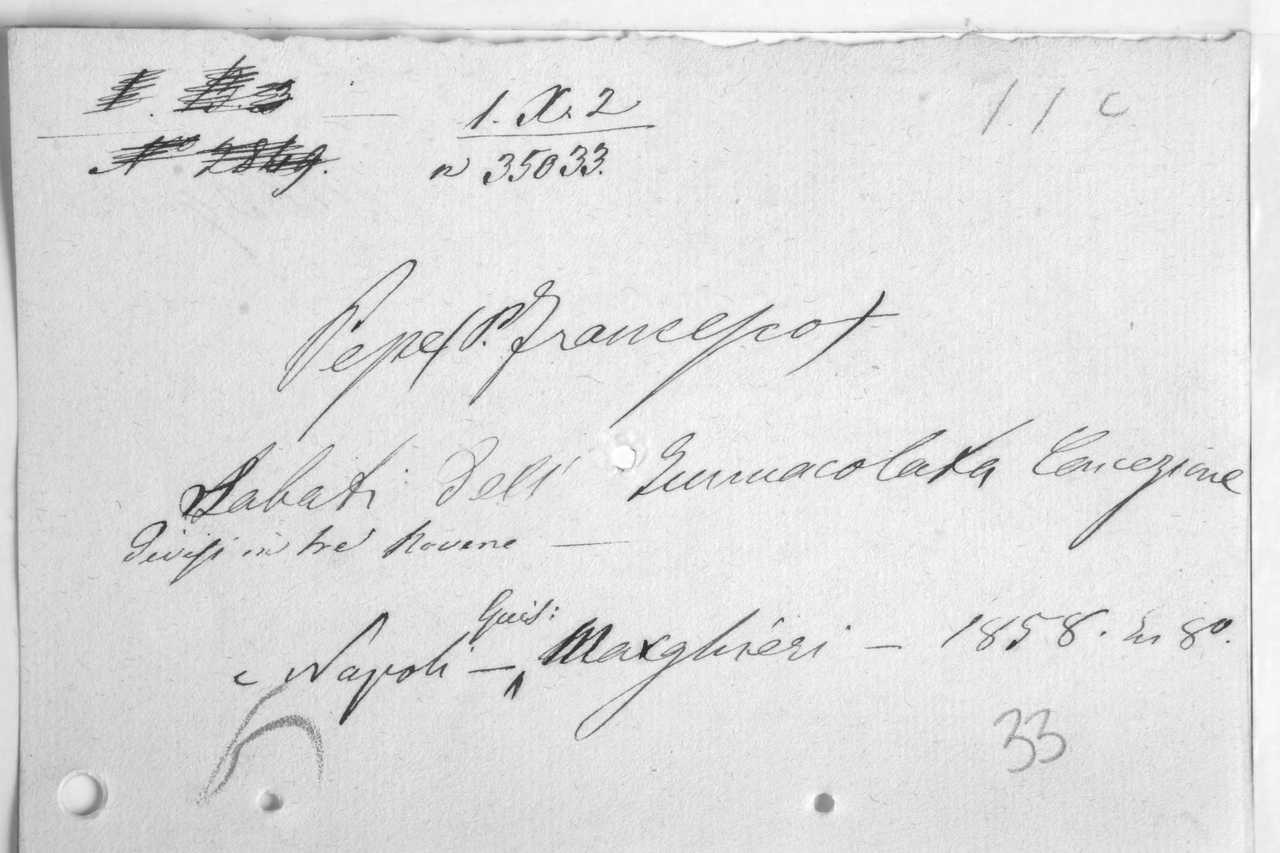 1. X. 2
n 35033.
Pepe (P. Francesco)
Sabati dell' Immacolata Concezione
Divisi in tre Novene —
Napoli — Gius: Marghieri — 1858. In 8º.
33